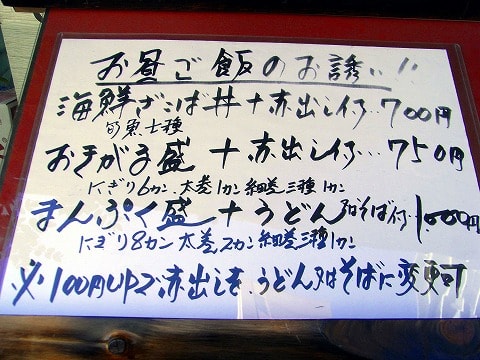 お昼ご飯のお誘い!!
海鮮ざこば丼＋赤出し付…700円
旬魚七種
おきがる盛＋赤出し付…750円
にぎり6カン、太巻1カン細巻三種1カン
まんぷく盛＋うどん又はそば付…1,000円
にぎり8カン太巻2カン細巻三種1カン
※100円UPで赤出しを、うどん又はそばに変更可